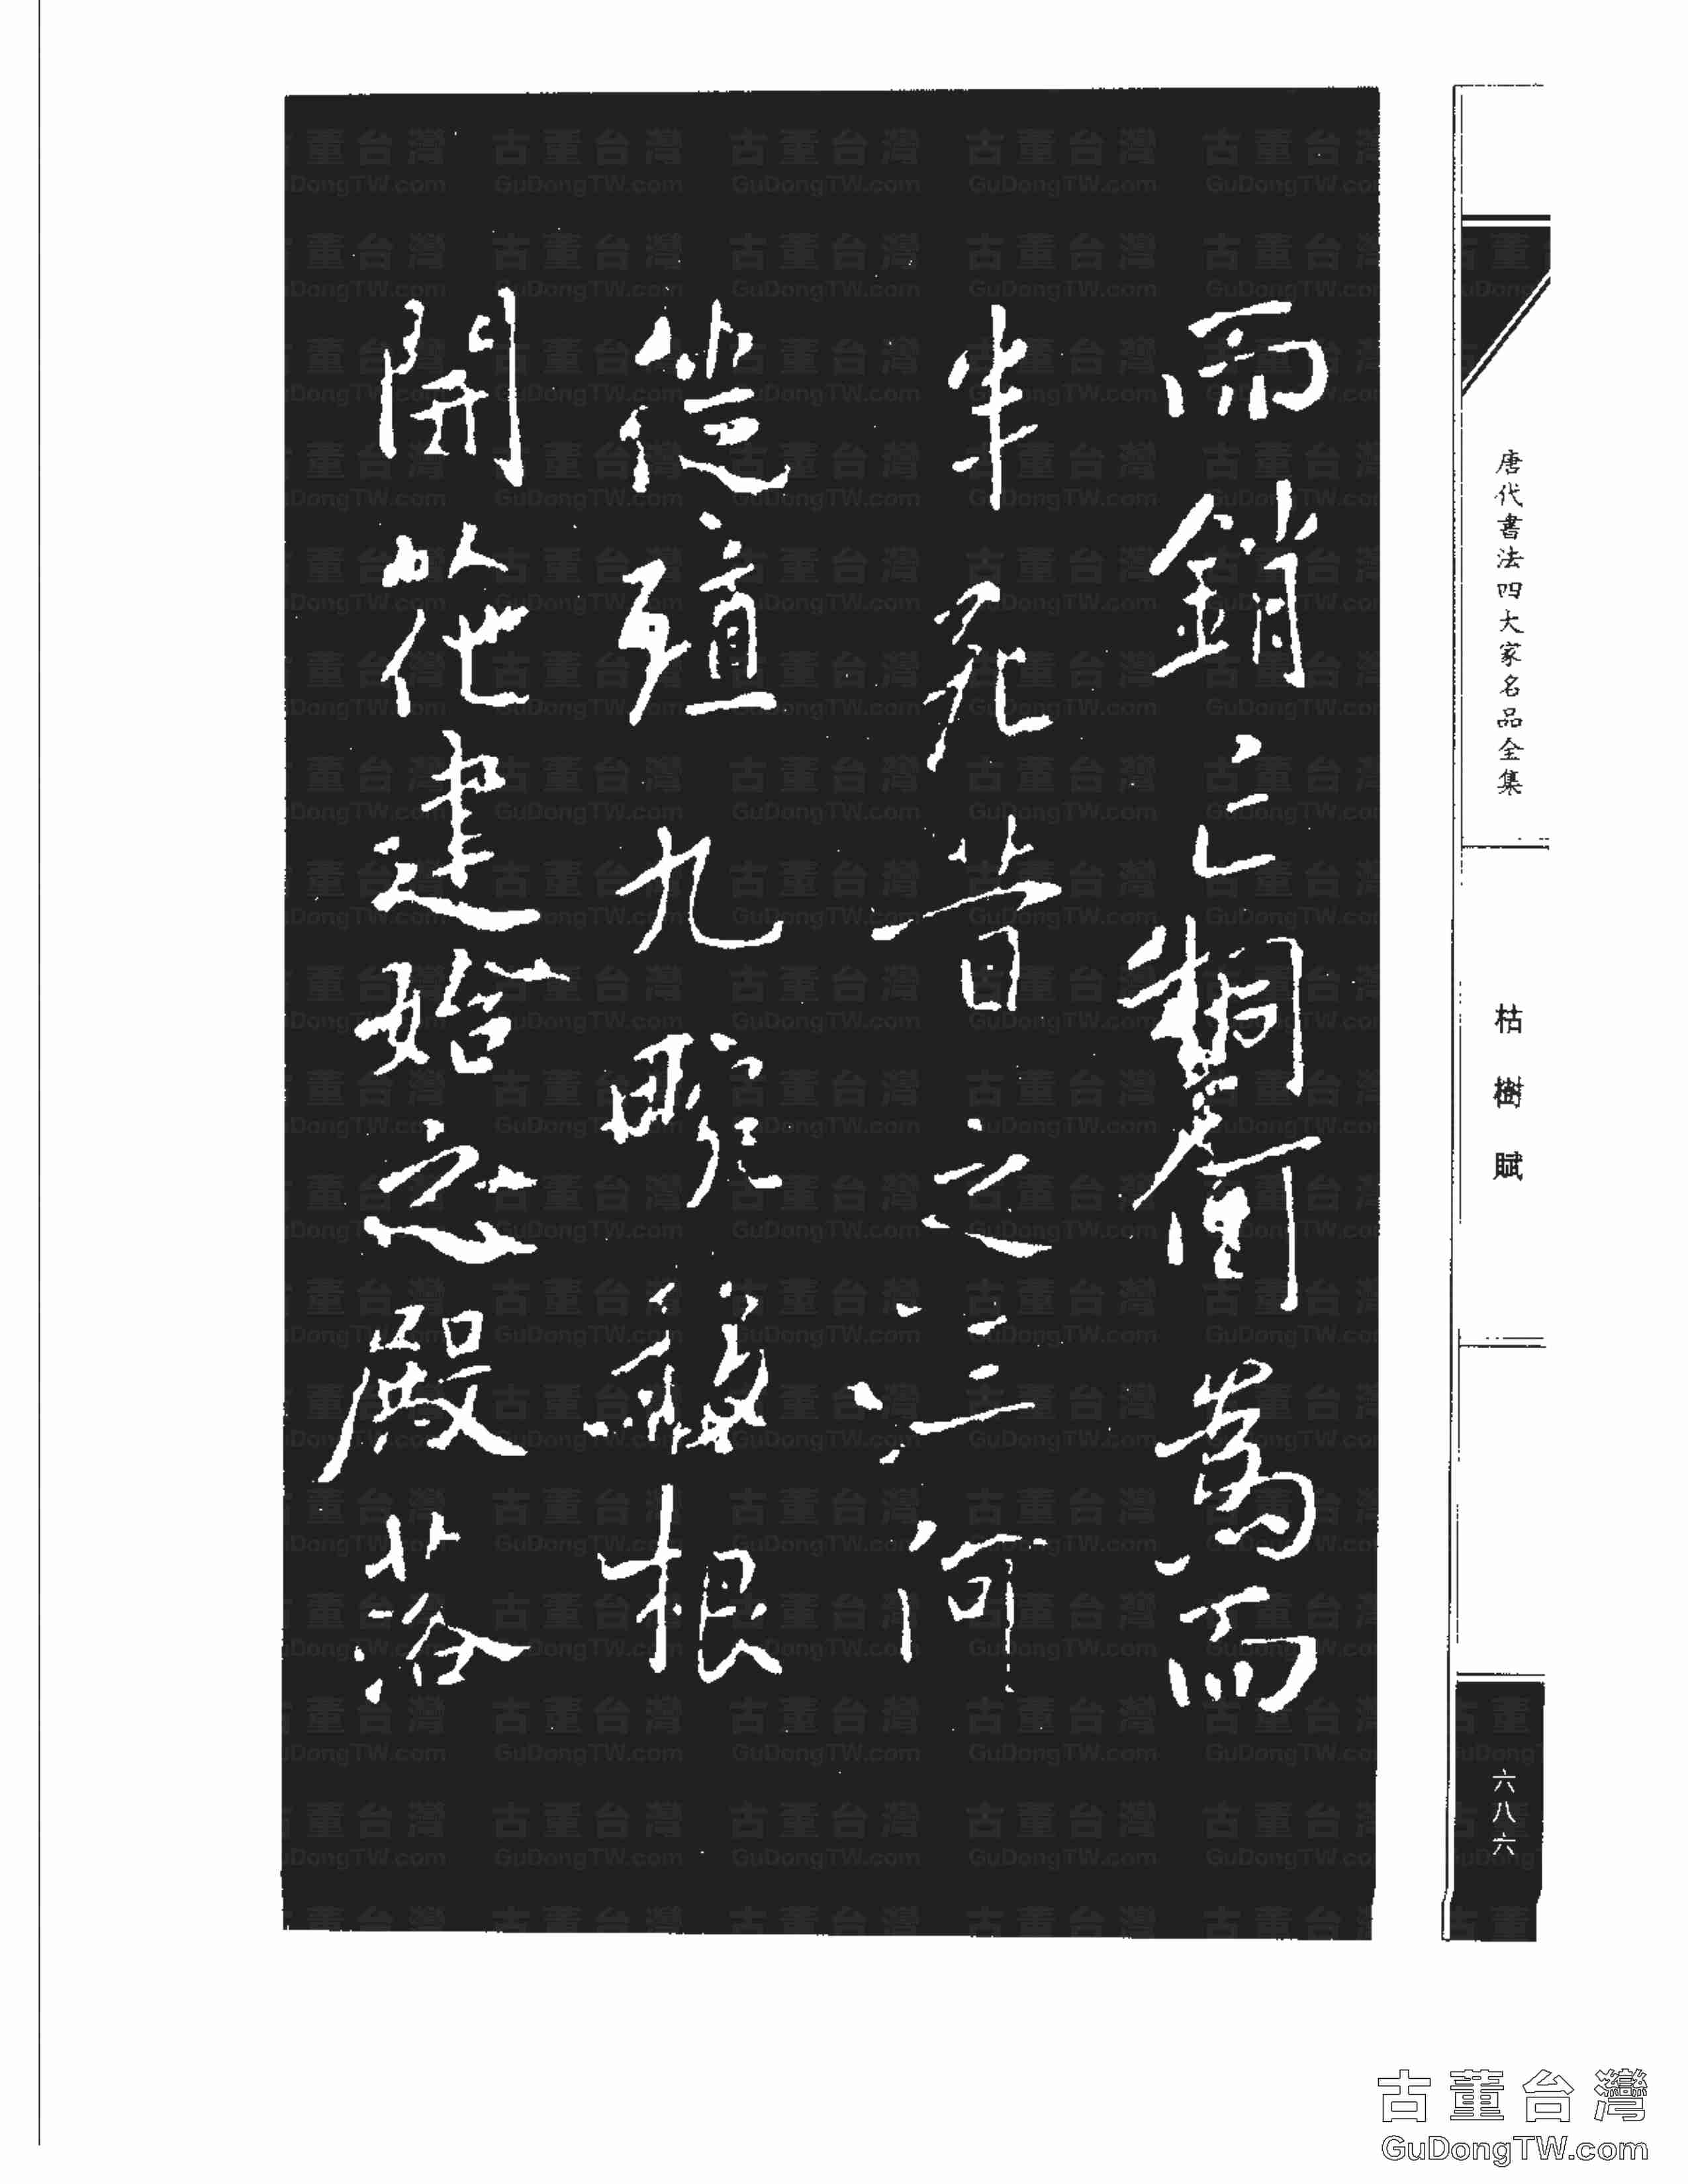 唐代書法四大家名品全集
枯樹賦
六八六
而銷亡桐何爲而
半死昔之三河
徙殖九畹移根
開花建始之殿落
古董台灣
GuDongTW.com